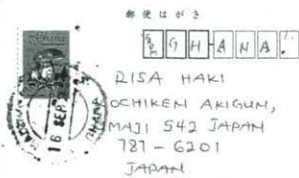 郵便はがき
GHANA!
RISA HAKI
OCHIKEN AKIGUN,
MAJI 542 JAPAN
787-6201
JAPAN
16 SEP